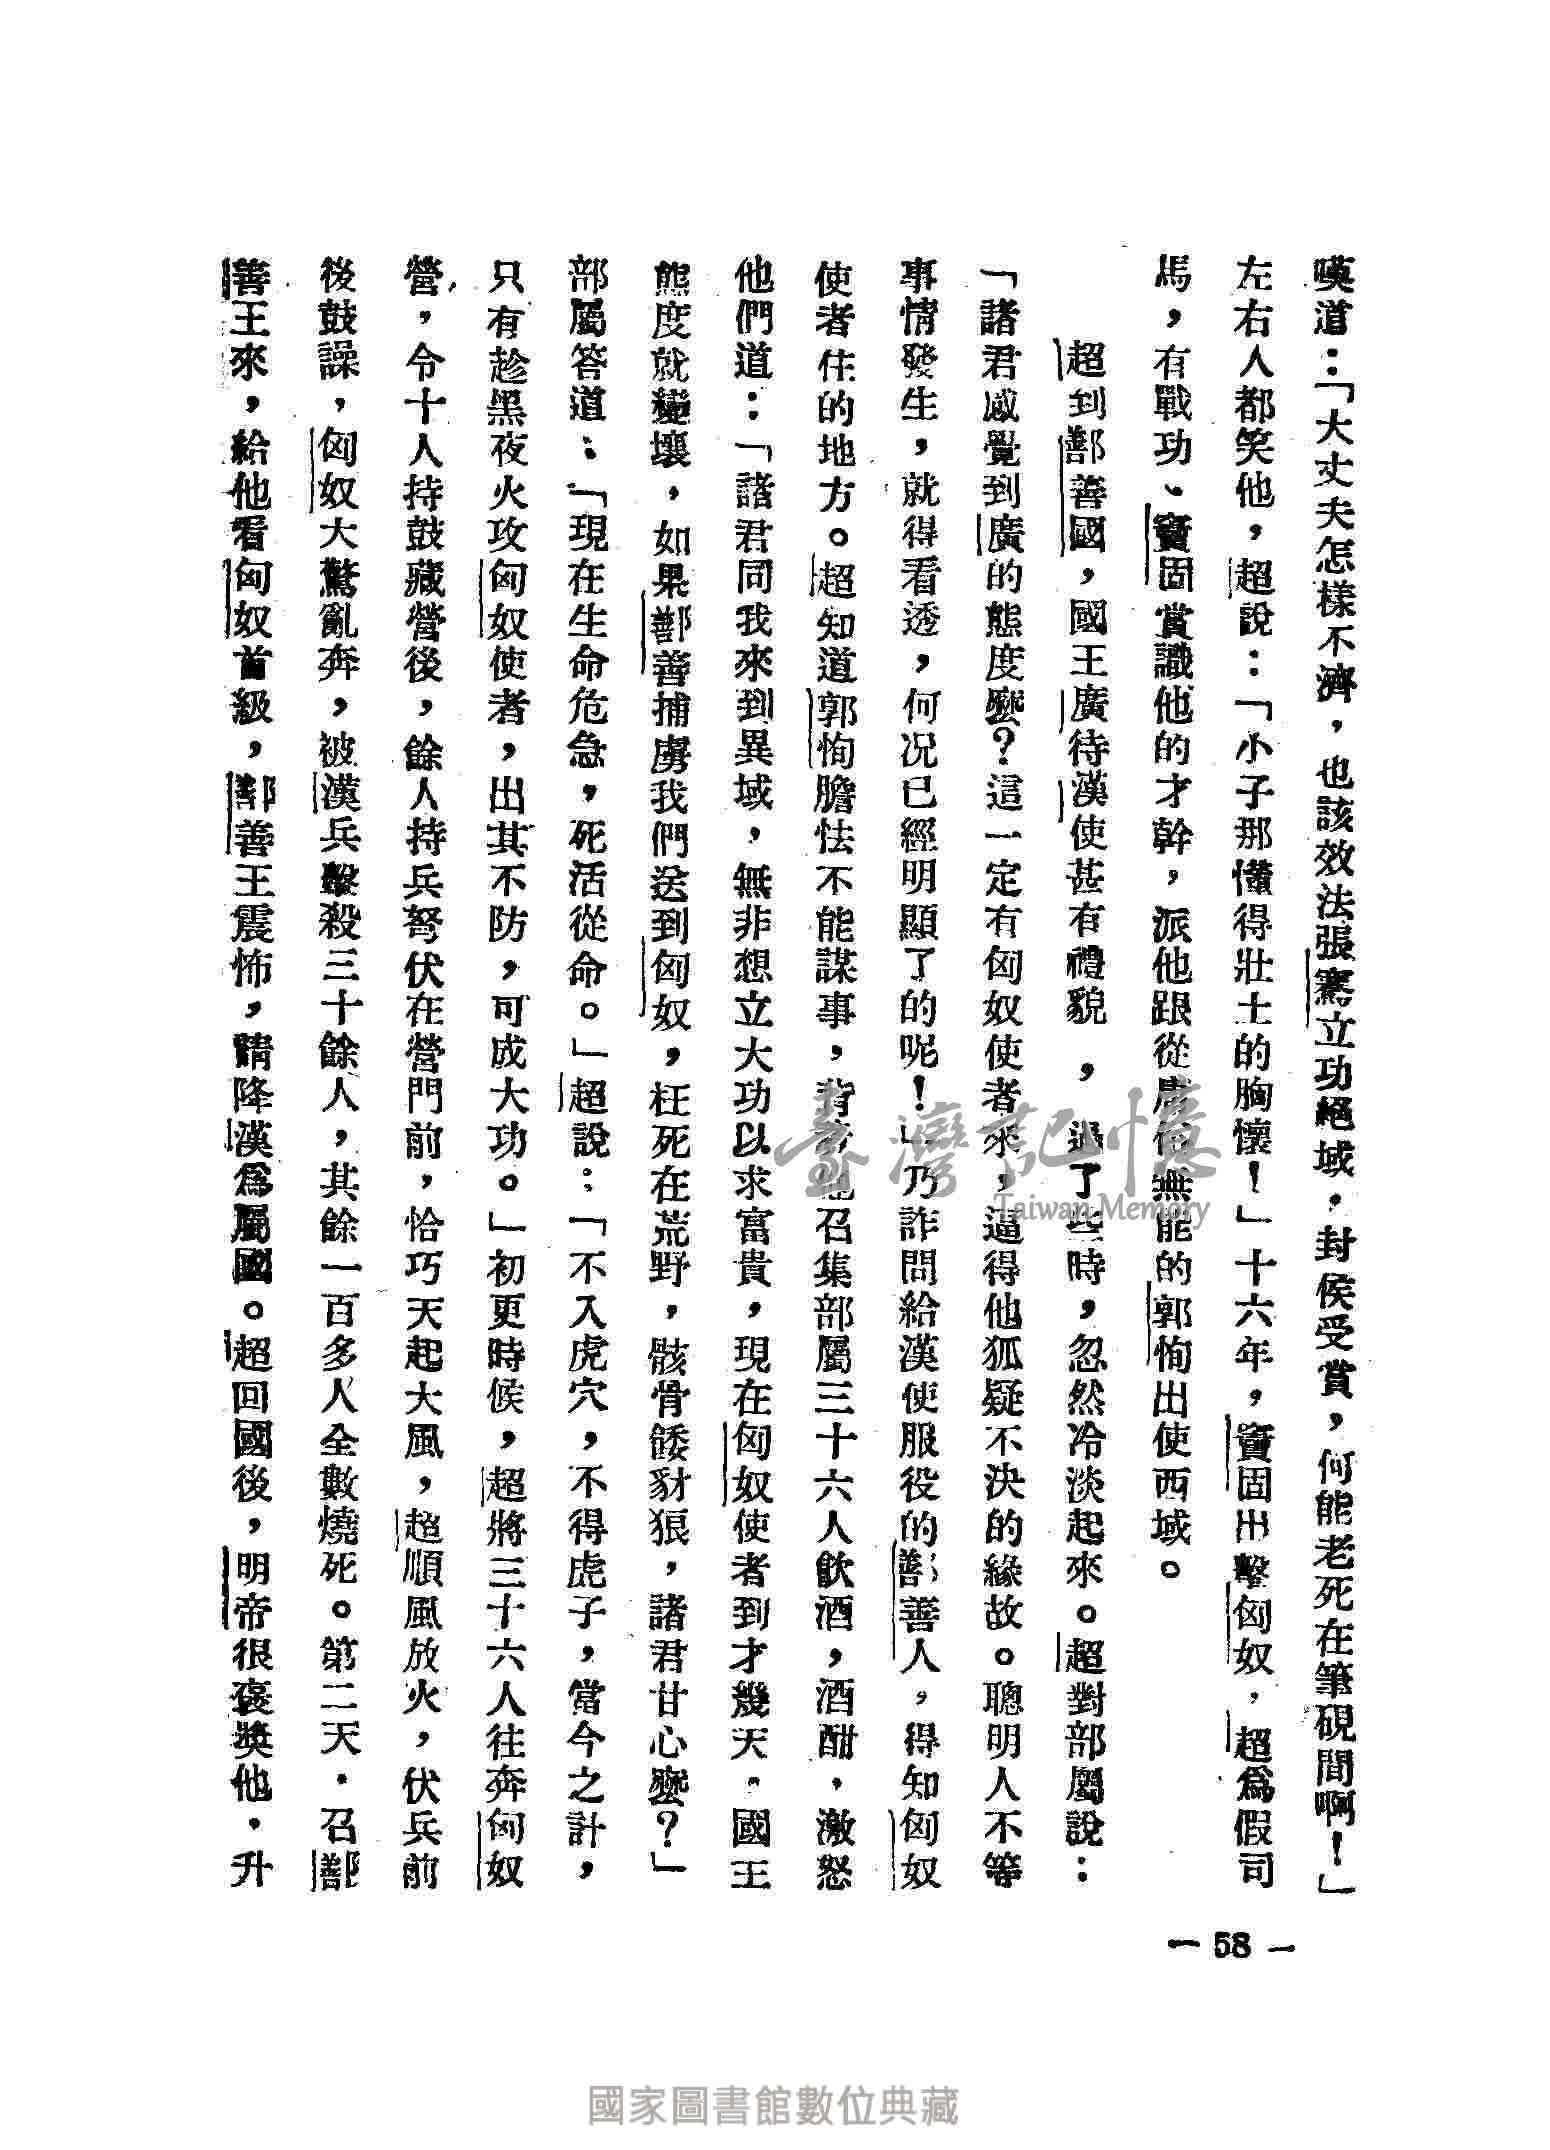 嘆道：「大丈夫怎樣不濟，也該效法張騫立功絕域，封侯受賞，何能老死在筆硯間啊！」
左右人都笑他，超說：「小子那懂得壯士的胸懷！」十六年，竇固出擊匈奴，超為假司
馬，有戰功、竇固賞識他的才幹，派他跟從庸俗無能的郭恂出使西域。
超到鄯善國，國王廣待漢使甚有禮貌，過了些時，忽然冷淡起來。超對部屬說：
「諸君感覺到廣的態度麼？這一定有匈奴使者來，逼得他狐疑不決的緣故。聰明人不等
事情發生，就得看透，何况已經明顯了的呢！」乃詐問給漢使服役的鄯善人，得知匈奴
使者住的地方。超知道郭恂膽怯不能謀事，背著他召集部屬三十六人飲酒，酒酣，激怒
他們道：「諸君同我來到異域，無非想立大功以求富貴，現在匈奴使者到才幾天，國王
態度就變壞，如果鄯善捕虜我們送到匈奴，枉死在荒野，骸骨餧豺狼，諸君甘心麼？」
部屬答道：「現在生命危急，死活從命。」超說：「不入虎穴，不得虎子，當今之計，
只有趁黑夜火攻匈奴使者，出其不防，可成大功。」初更時候，超將三十六人往奔匈奴
營，令十人持鼓藏營後，餘人持兵弩伏在營門前，恰巧天起大風，超順風放火，伏兵前
後鼓譟，匈奴大驚亂奔，被漢兵擊殺三十餘人，其餘一百多人全數燒死。第二天．召鄯
善王來，給他看匈奴首級，鄯善王震怖，請降漢為屬國。超回國後，明帝很褒獎他．升
— 58 —
臺灣記憶
Taiwan Memory
國家圖書館數位典藏